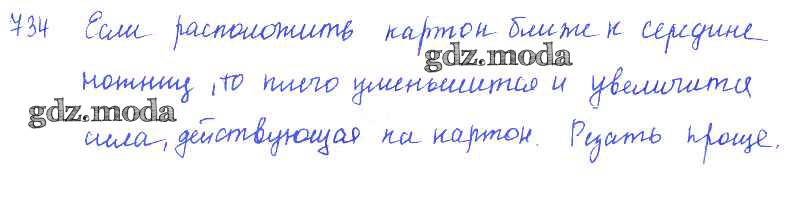 734 Если расположить картон ближе к середине
gdz.moda
ножниц, то плечо уменьшится и увеличится
gdz.moda
сила, действующая на картон. Резать проще.